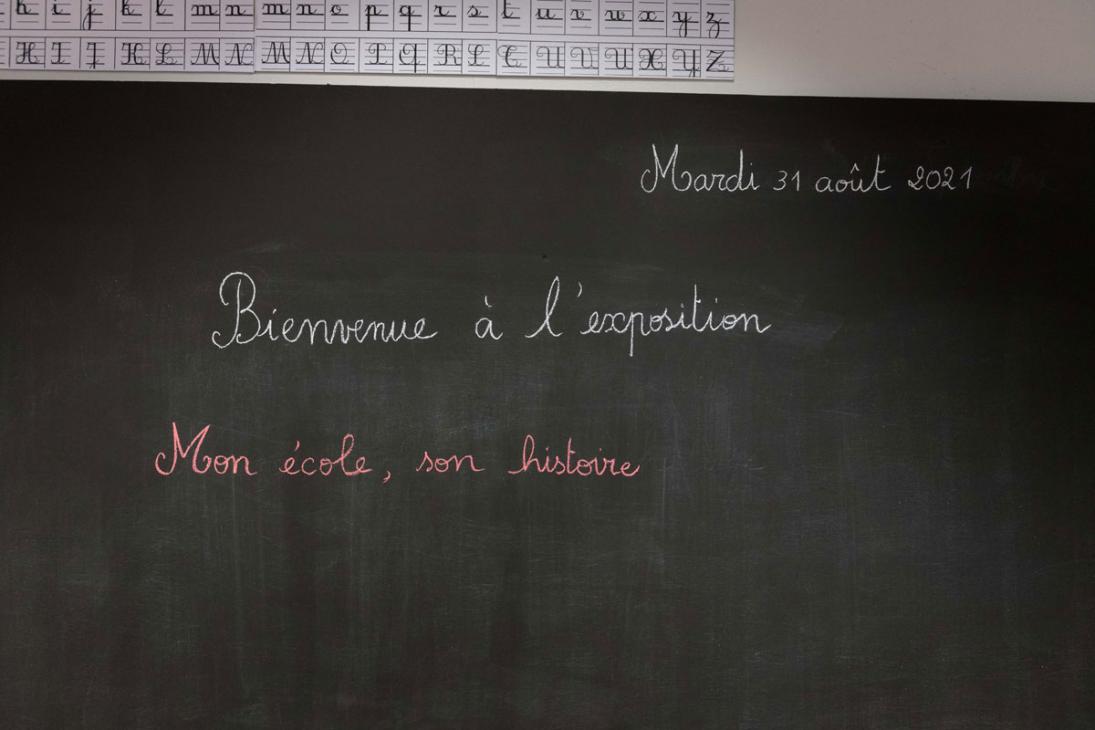 h i j k l m n m n o p q r s t u v w x y z
H I J K L M N M N O P Q R S T U V W X Y Z
Mardi 31 août 2021
Bienvenue à l'exposition
Mon école, son histoire